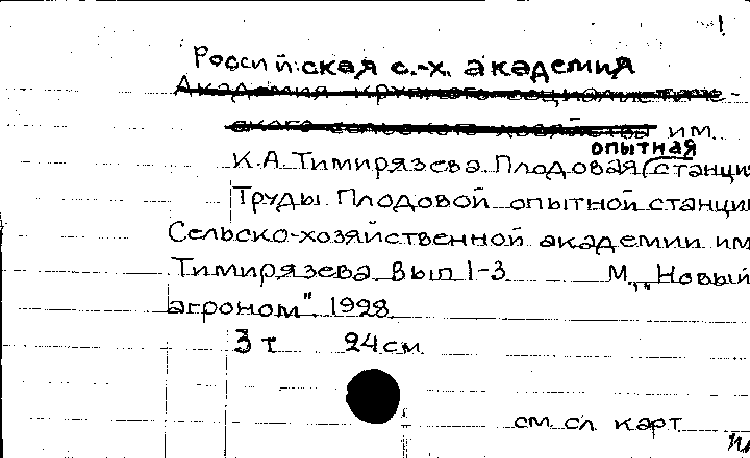 Российская с.-х. академия
Академия крупного социалистиче-
ского сельского хозяйства им.
опытная
К.А. Тимирязева. Плодовая станци
Труды Плодовой опытной станции
Сельско-хозяйственной академии им
Тимирязева. Вып 1-3 М., „Новый
агроном". 1928.
3 т 24 см.
см сл карт